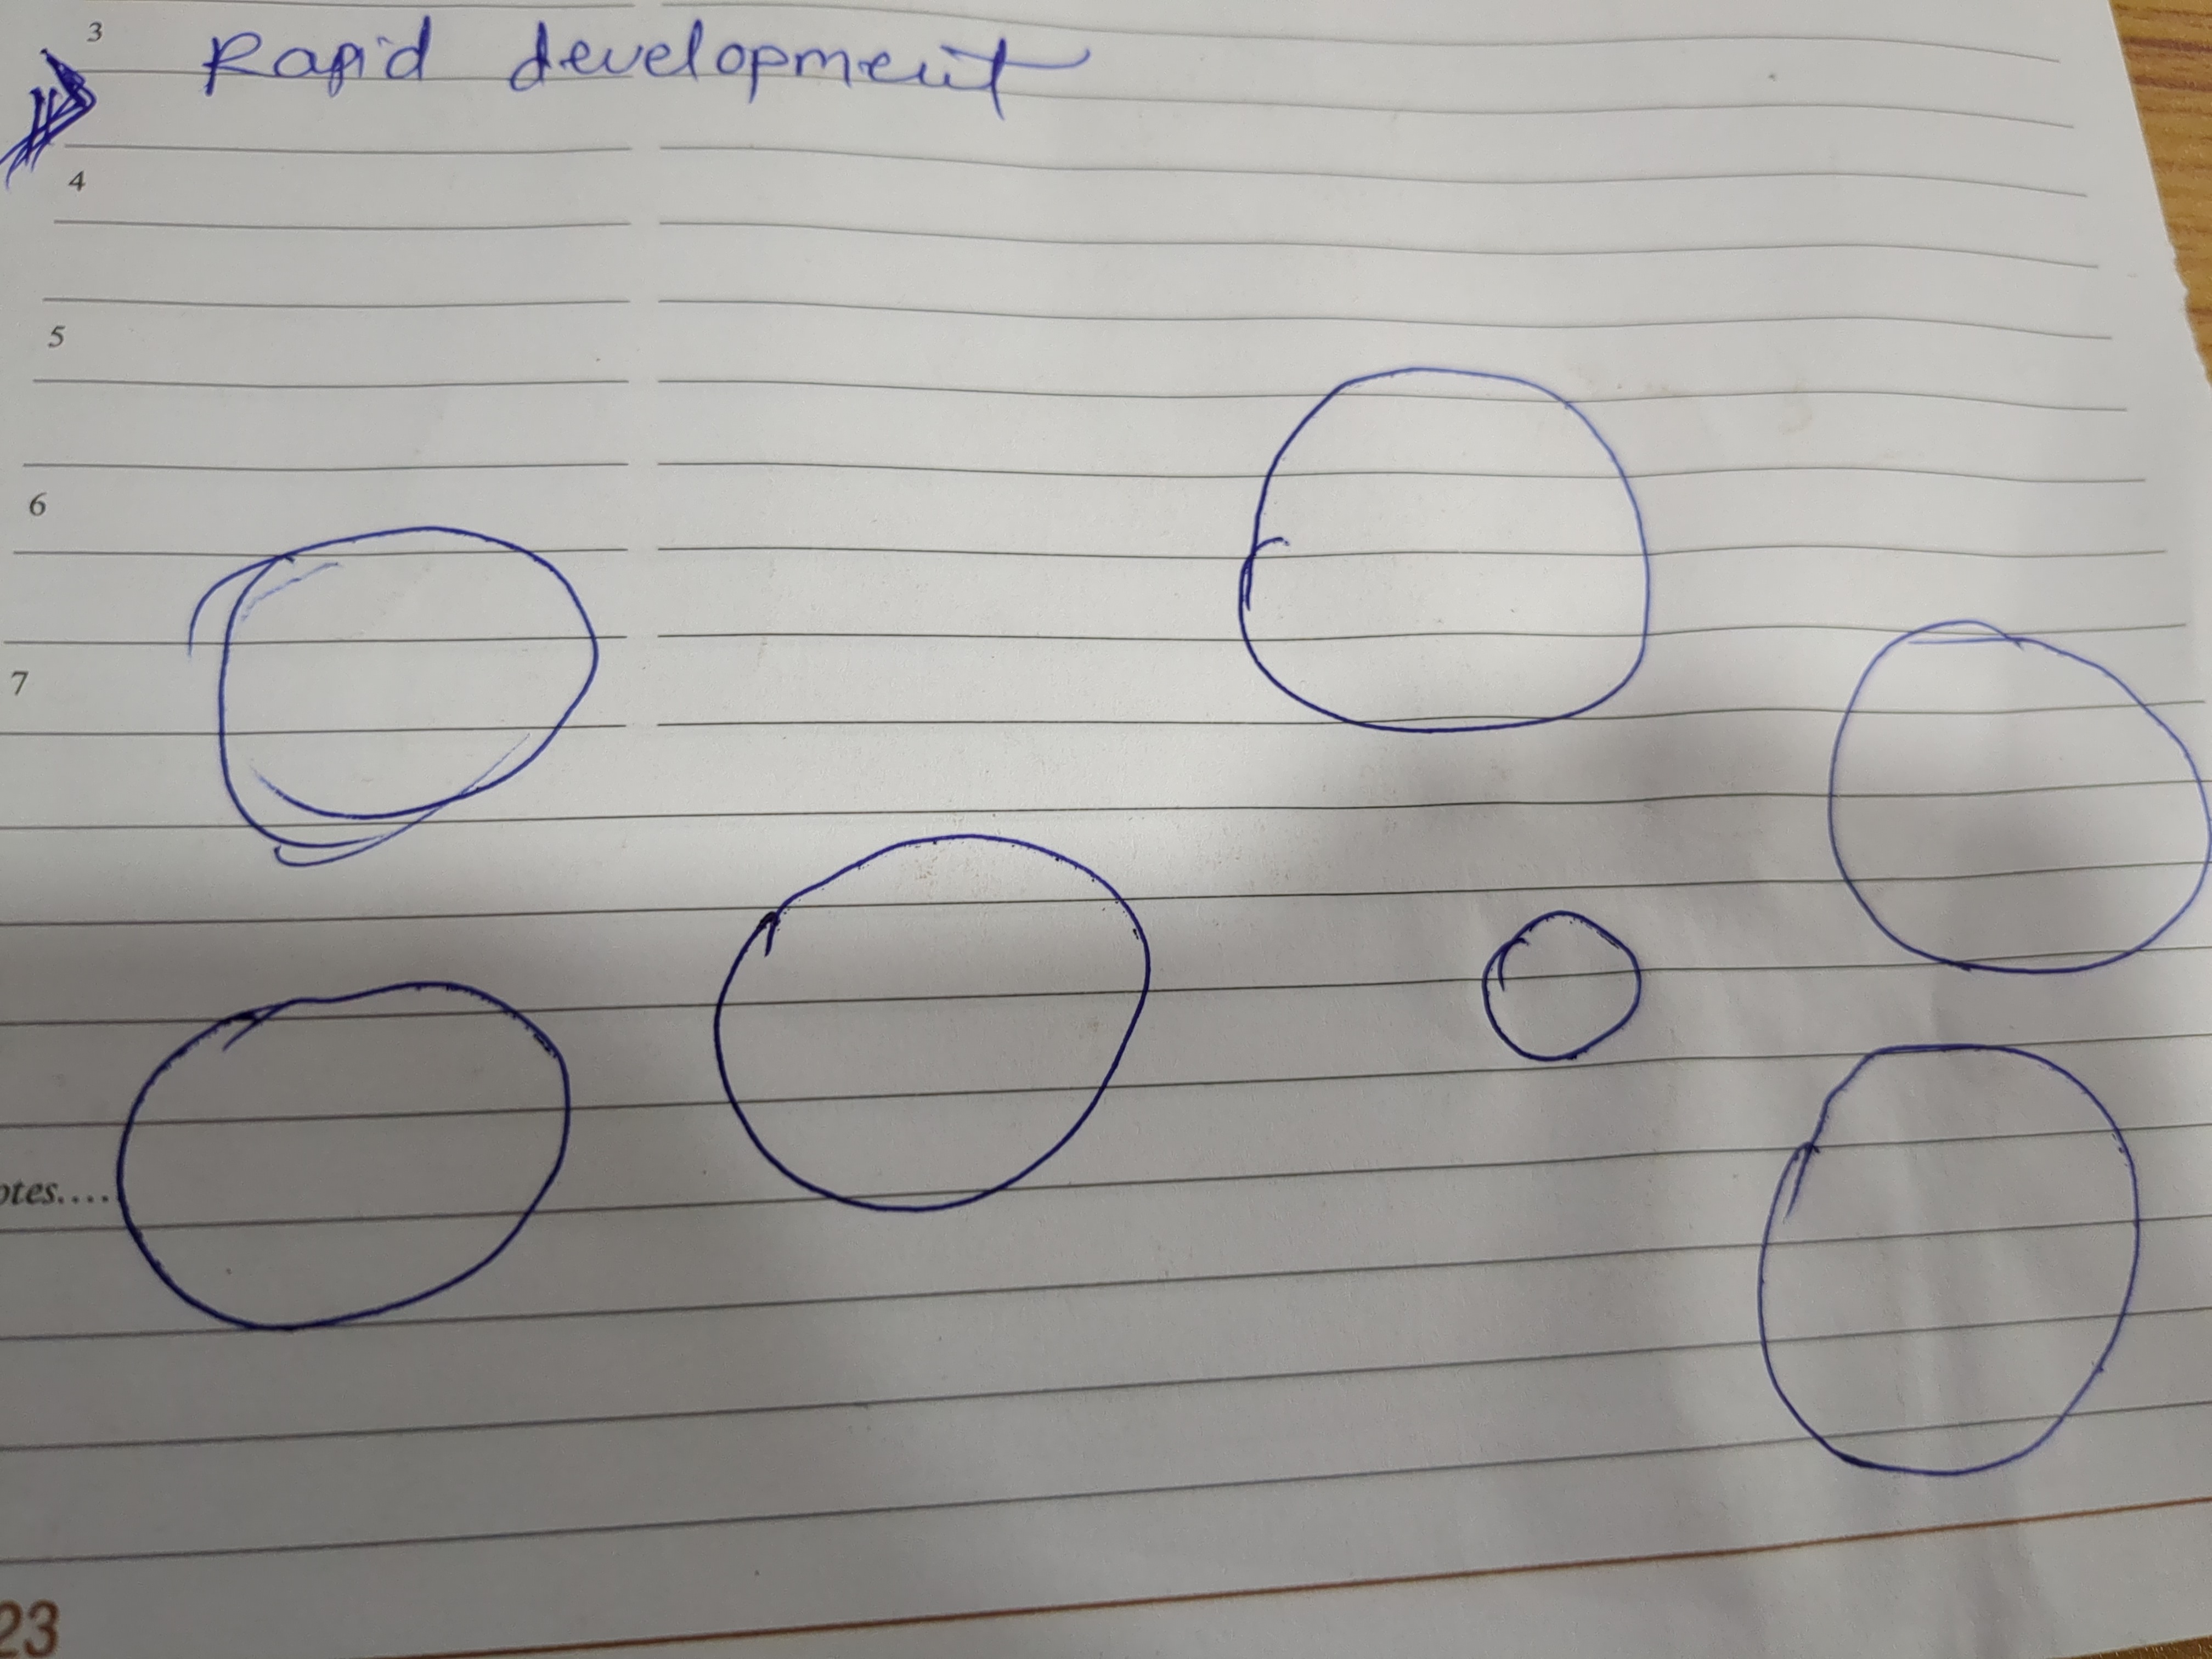 3
Rapid development
4
5
6
7
otes....
23